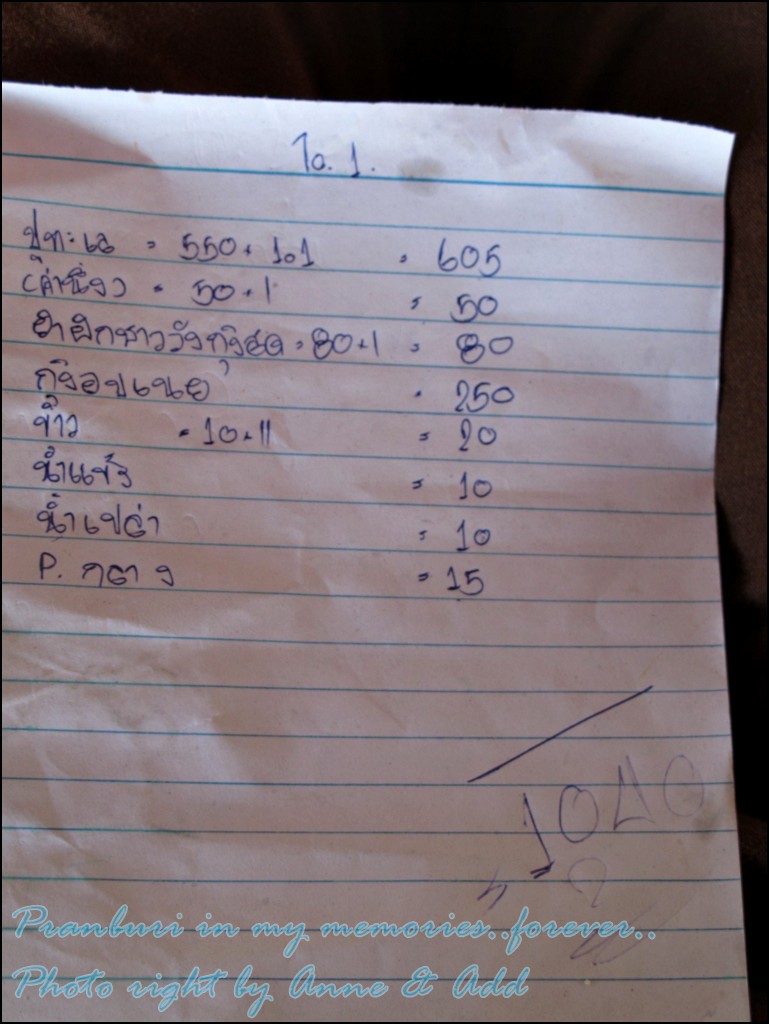 โต. 1.
ปูทะเล = 550 × 1.1 = 605
= 50 × 1 = 50
ยำผักชาววังกุ้งสด = 80 × 1 = 80
กุ้งอบเนย = 250
ข้าว = 10 × 11 = 20
น้ำแข็ง = 10
น้ำเปล่า = 10
P. กลาง = 15
1040
Pranburi in my memories..forever..
Photo right by Anne & Add